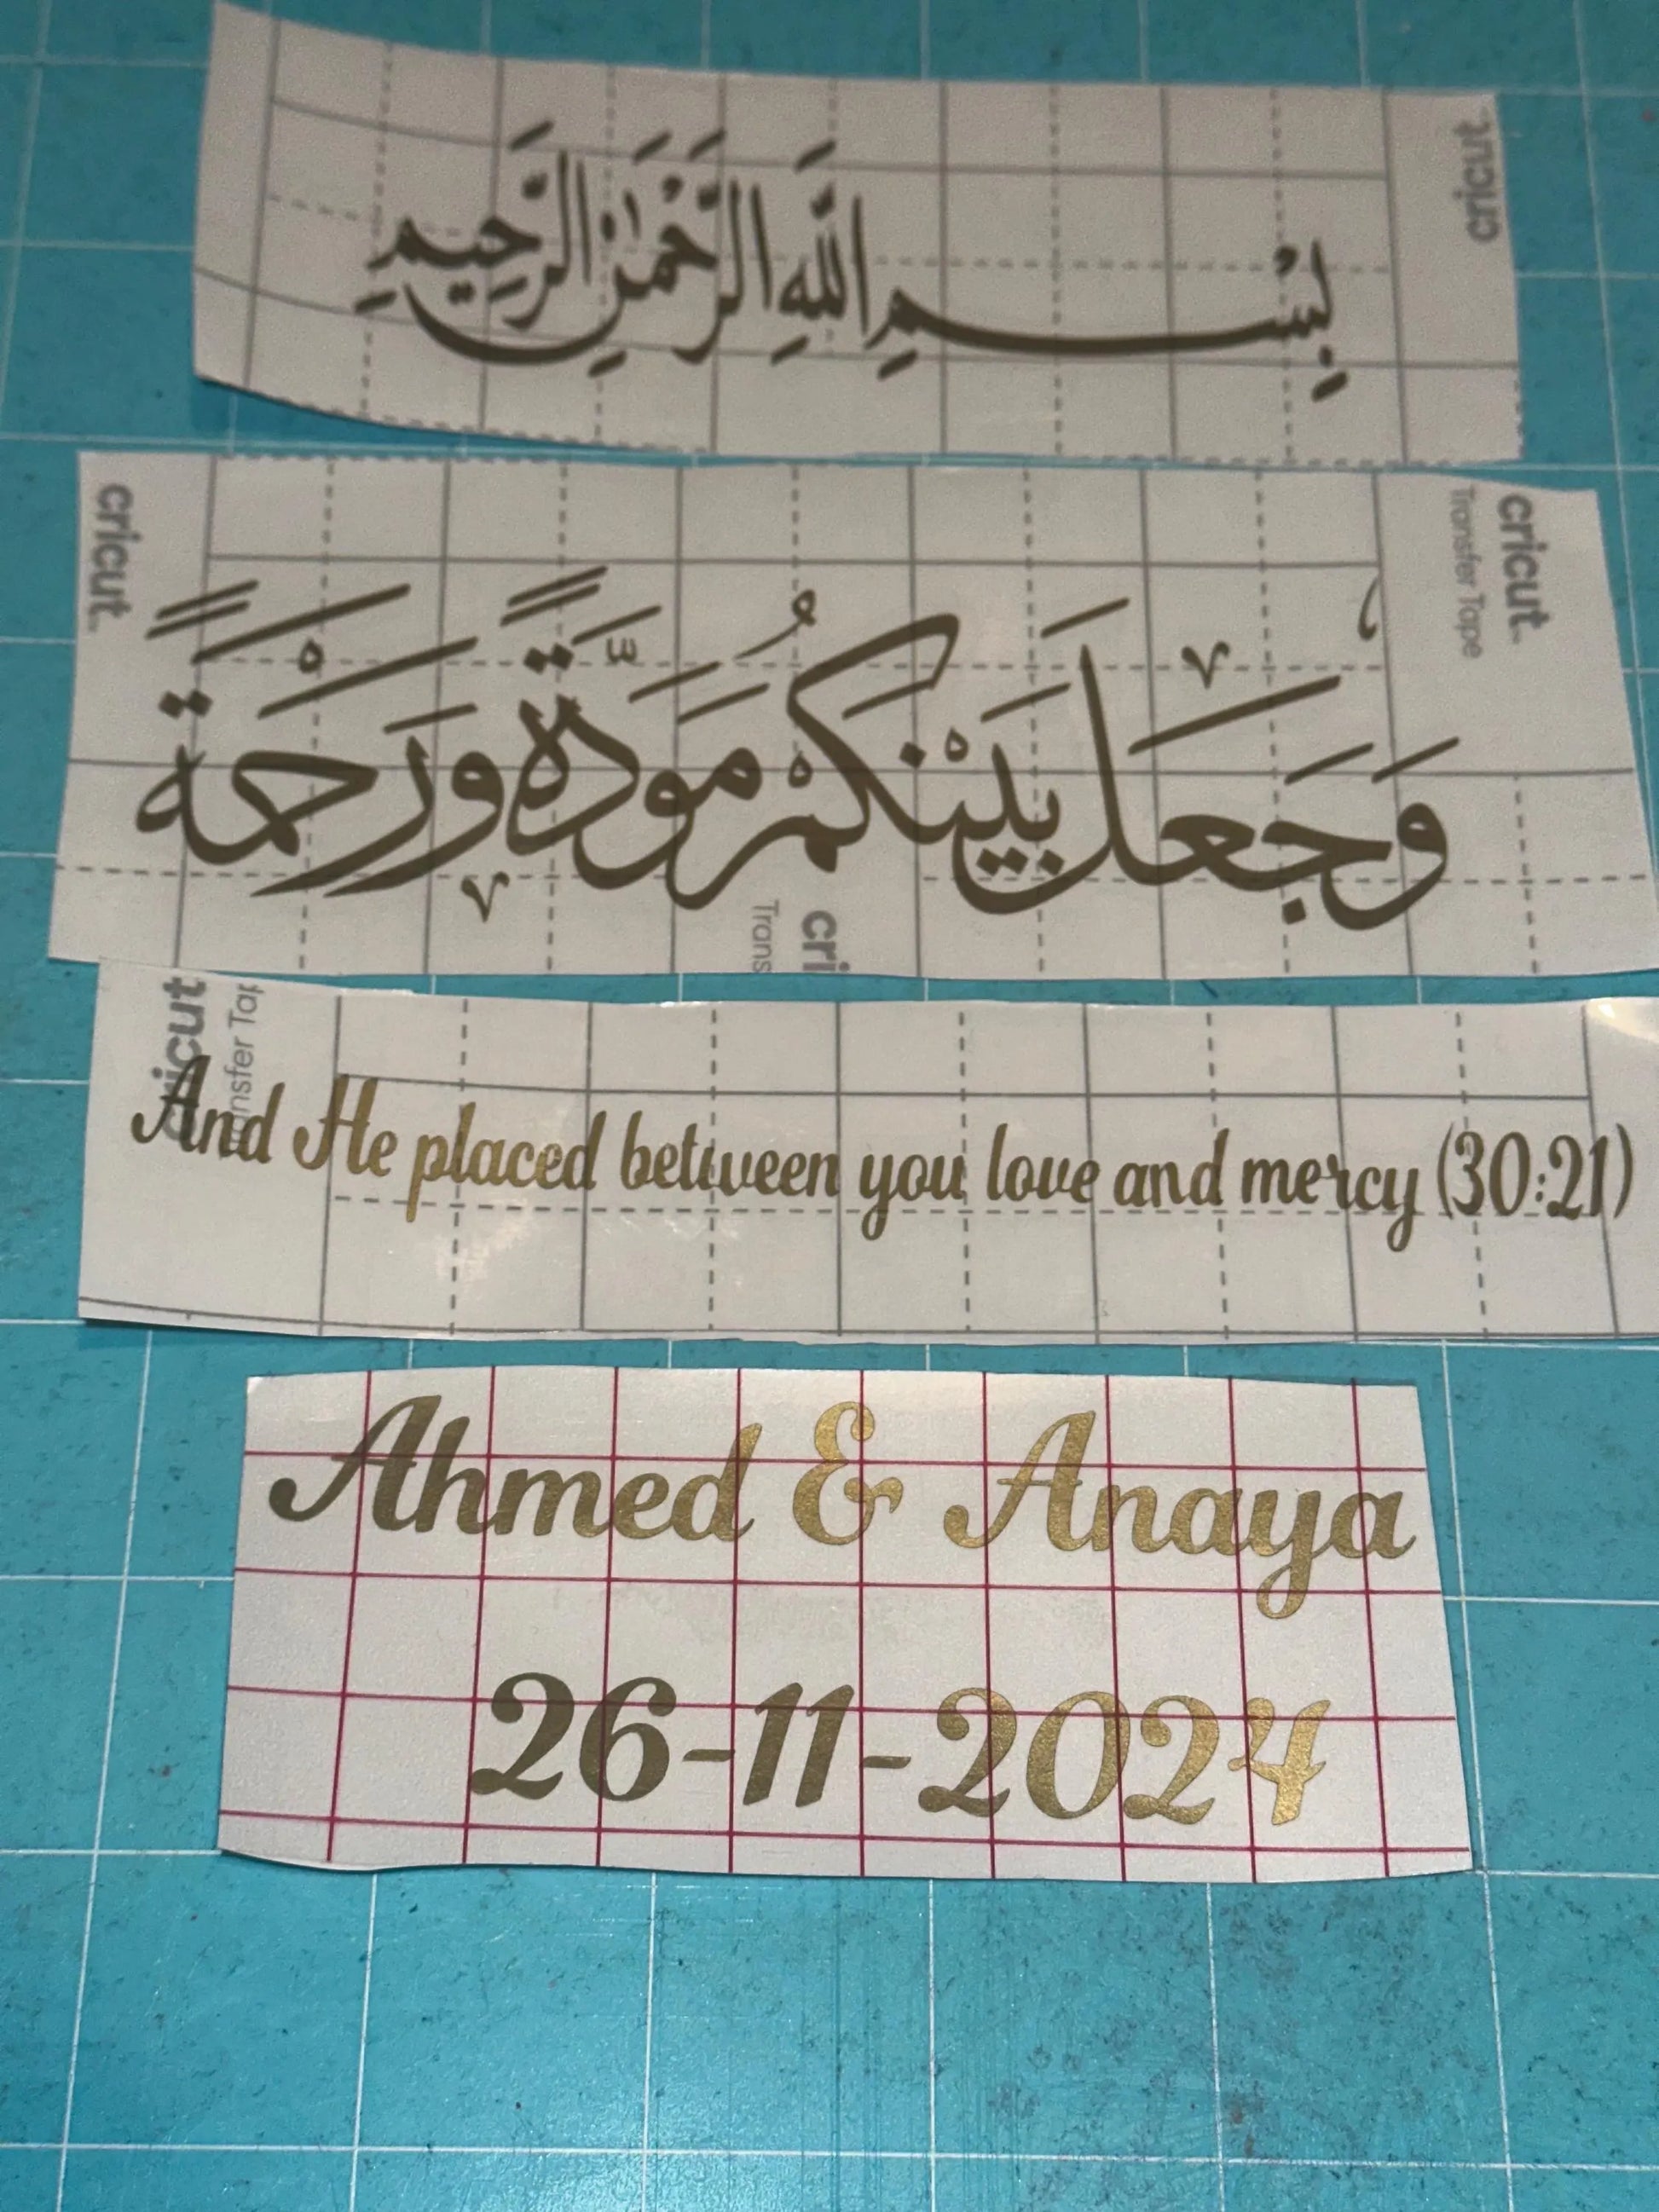 cricut
بِسْمِ اللَّهِ الرَّحْمَٰنِ الرَّحِيمِ
cricut
cricut
Transfer Tape
وَجَعَلَ بَيْنَكُمْ مَوَدَّةً وَرَحْمَةً
cri
Trans
cricut
Transfer Tap
And He placed between you love and mercy (30:21)
Ahmed & Anaya
26-11-2024